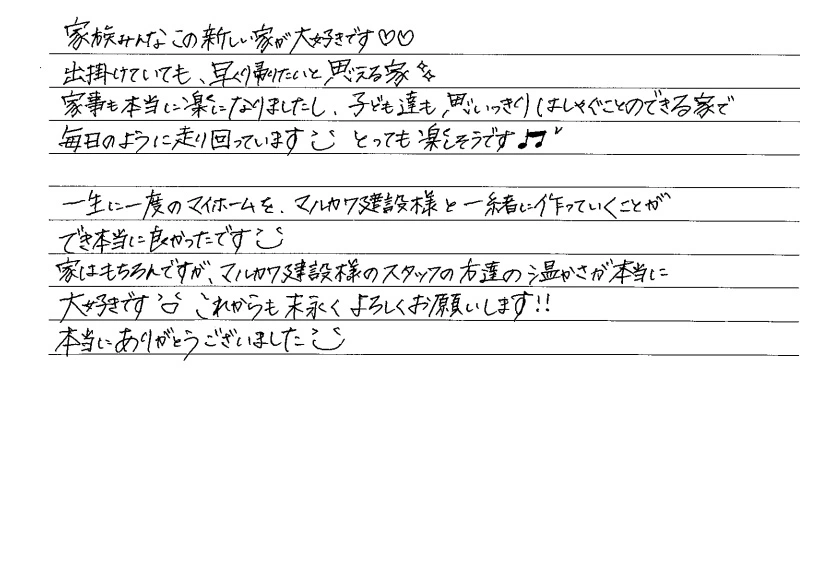 家族みんなこの新しい家が大好きです♡♡
出掛けていても、早く帰りたいと思える家
家事も本当に楽になりましたし、子ども達も思いっきりはしゃぐことのできる家で
毎日のように走り回っています とっても楽しそうです♫
一生に一度のマイホームを、マルカワ建設様と一緒に作っていくことが
でき本当に良かったです
家はもちろんですが、マルカワ建設様のスタッフの方達の温かさが本当に
大好きです これからも末永くよろしくお願いします!!
本当にありがとうございました